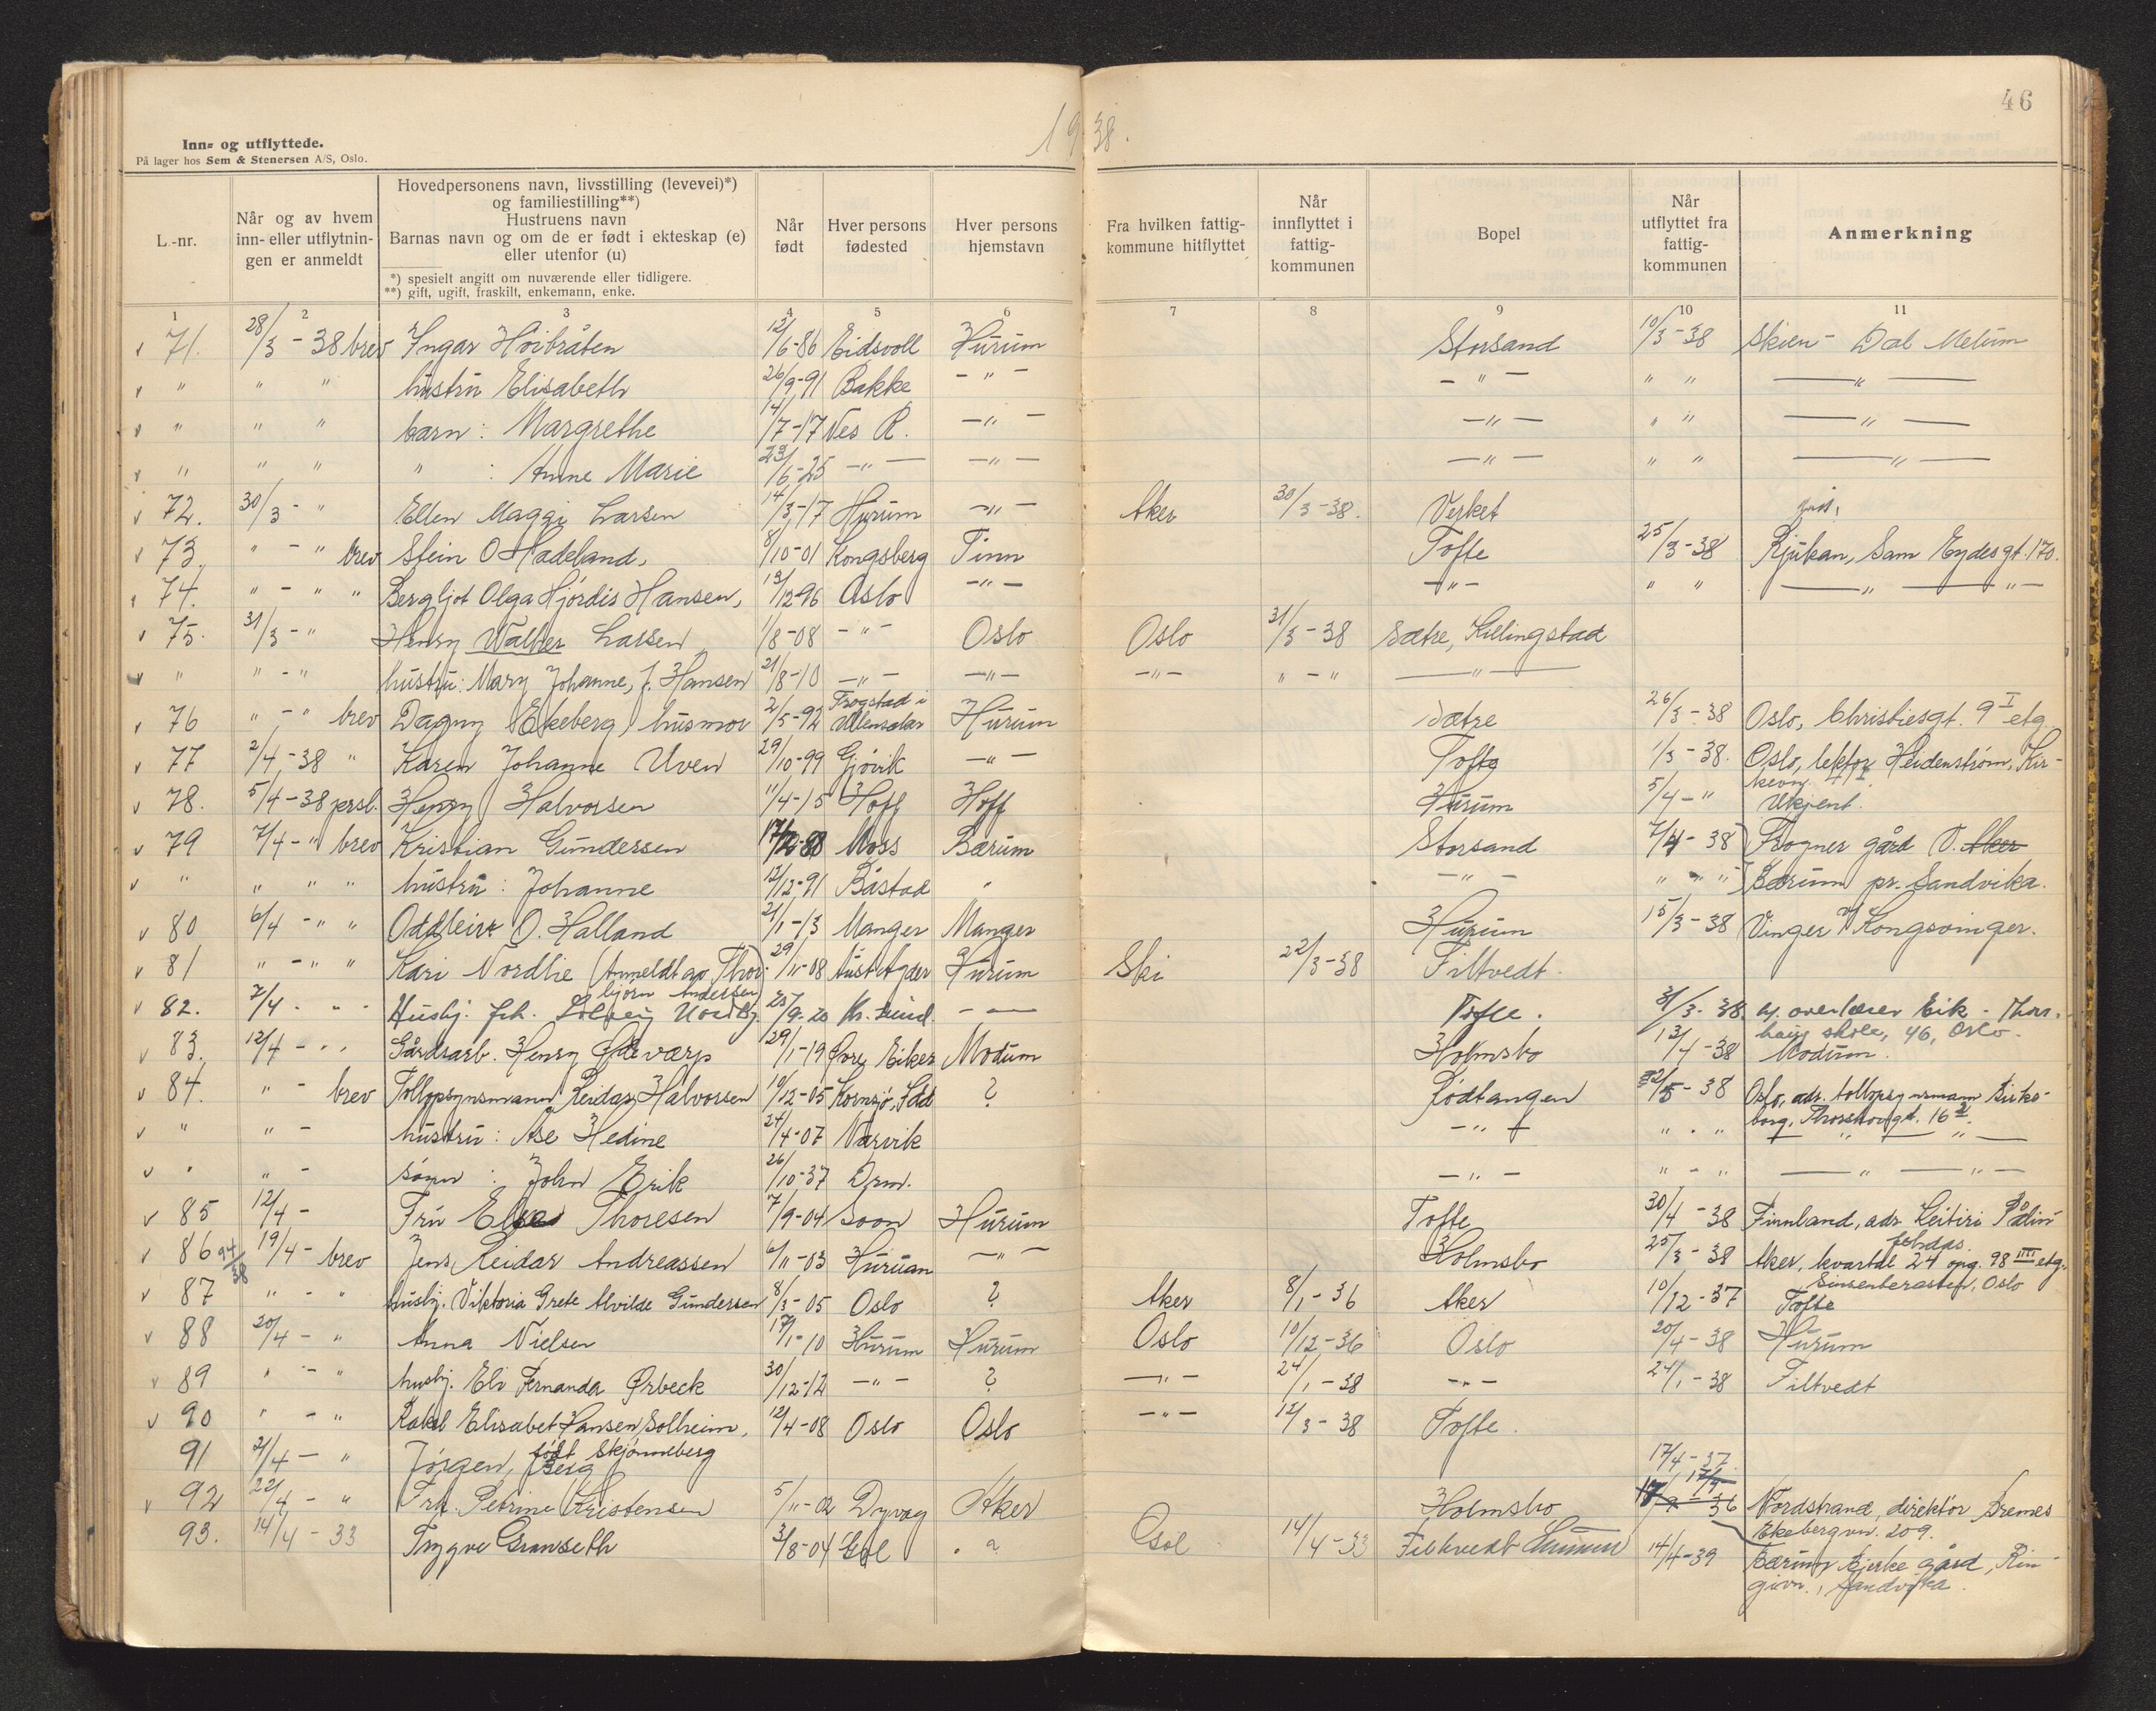 46
1938.
Inn- og utflyttede.
På lager hos Sem & Stenersen A/S, Oslo.
L.-nr. | Når og av hvem inn- eller utflytningen er anmeldt | Hovedpersonens navn, livsstilling (levevei)*) og familiestilling**) Hustruens navn Barnas navn og om de er født i ekteskap (e) eller utenfor (u) *) spesielt angitt om nuværende eller tidligere. **) gift, ugift, fraskilt, enkemann, enke. | Når født | Hver persons fødested | Hver persons hjemstavn | Fra hvilken fattigkommune hitflyttet | Når innflyttet i fattigkommunen | Bopel | Når utflyttet fra fattigkommunen | Anmerkning
1 2 3 4 5 6 7 8 9 10 11
v 71. 28/3 - 38 brev Ingar Høibråten 12/6-86 Eidsvoll Hurum Storsand 10/3-38 Skien - Dal Melum
v " " " hustru Elisabeth 26/9-91 Bakke - " - - " - " " — " —
v " " " barn: Margrethe 14/7-17 Nes R. - " - - " - " " — " —
v " " " " : Anne Marie 23/6-25 - " - - " - - " - " " — " —
v 72. 30/3 - " Ellen Maggi Larsen 14/3-17 Hurum - " - Aker 30/3-38. Verket
v 73. " - " brev Stein O Hadeland, 8/10-01 Kongsberg Tinn Tofte 25/3-38 Rjukan, Sam Eydesgt. 170.
v 74. " - " " Bergljot Olga Hjørdis Hansen, 13/12-96 Oslo - " - - " - " " — " — " —
v 75. 31/3 - " Henry Walther Larsen 1/8-08 - " - Oslo Oslo 31/3-38 Sætre, Killingstad
" " - " hustru: Mary Johanne, f. Hansen 21/8-10 - " - - " - - " - " - " — " —
v 76 " - " brev Dagny Ekeberg, husmor 2/5-92 Trogstad i Hurum Sætre 26/3-38 Oslo, Christiesgt. 9 I etg
v 77 2/4-38 " Karen Johanne Uven 29/10-99 Gjøvik - " - Tofte 1/3-38. Oslo, lektor Heidenstrøm, Kir-
v 78. 5/4-38 persl. Henry Halvorsen 11/4-15 Hoff Hoff Hurum 5/4 - " Ukjent.
v 79 7/4 - " brev Kristian Gundersen 88 Moss Bærum Storsand 7/4-38 Frogner gård V. Aker
v " " " " hustru: Johanne 12/12-91 Båstad " - " - " - " Bærum pr. Sandvika.
v 80 6/4 - " " Oddleir O. Halland 21/1-13 Manger Manger Hurum 15/3-38 Vinger Kongsvinger.
v 81 " - " " Kari Nordlie (Anmeldt av Thor- 29/11-08 Aust Agder Hurum Ski 22/3-38 Filtvedt.
bjørn Andersen)
v 82. 7/4 - " - Husbj. frk. Solveig 25/9-20 Kr. sund. - " - Tofte. 31/3-38. overlærer Eik - Thors-
haug skole, 46, Oslo.
v 83. 12/4 - " " Gårdsarb. Henry 29/1-19 Øvre Eiker Modum Holmsbo 13/4-38 Modum.
v 84. " - brev Tollopsynsmann Reidar Halvorsen 10/12-05 Kornsjø, Idd ? Rødtangen 5-38 Oslo, adr. tollopsynsmann
borg, Thorshovgt. 16
v " " - hustru: Åse Hedine 24/4-07 Narvik - " - " - " — " — " —
v " " - sønn: John Erik 26/10-37 Drm. - " - " - " — " — " —
v 85 12/4 - Fru Thoresen 7/9-04 Soon Hurum Tofte 30/4-38 Finnland, adr.
v 86 94/38 19/4 - brev Jens Reidar Andreassen 6/11-03 Huruan - " - Holmsbo 25/3-38 Aker, kvartal 24 opg. 98 IIII etg.
Oslo
v 87 " - " husbj. Viktoria Grete Alvilde Gundersen 8/3-05 Oslo ? Aker 8/1-36 Aker 10/12-37 Tofte
v 88 20/4 - " Anna Nielsen 17/1-10 Hurum Hurum Oslo 10/12-36 Oslo 20/4-38 Hurum
v 89 " - " husbj. Eli Fernanda Ørbeck 30/12-12 - " - ? - " - 24/1-38 - " - 24/1-38 Filtvedt
v 90 " - " Rakel Elisabet Hansen Solheim, 12/4-08 Oslo Oslo - " - 12/3-38 Tofte.
født Skjønneberg
91 21/4 - " Jørgen, Berg 17/4-37.
v 92 22/4 - " Frk. Petrine Kristensen 5/11-02 Dyvåg Aker Holmsbo 36 Nordstrand, direktør
Ekebergvn. 209.
93. 14/4-33 Trygve Granseth 3/8-04 Gol ? 14/4-33 Filtvedt Hurum 14/4-39 Bærum, Bjerke gård, Rin-
givn., Sandvika.